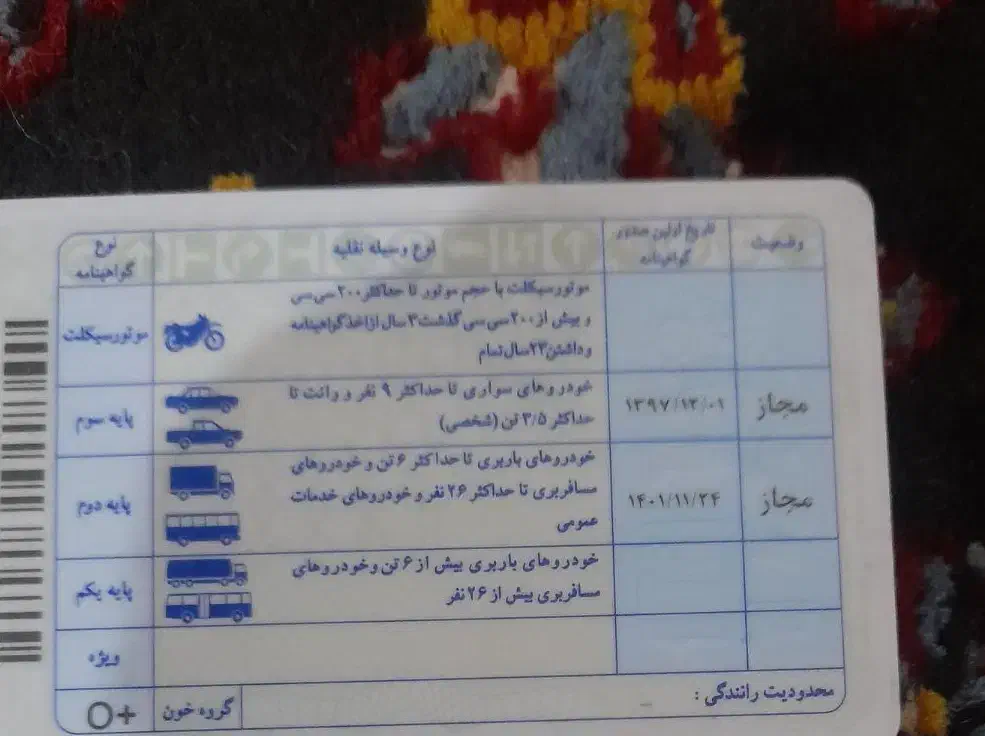 وضعیت
تاریخ اولین صدور
گواهینامه
نوع وسیله نقلیه
نوع
گواهینامه
موتورسیکلت با حجم موتور تا حداکثر ۲۰۰ سی سی
و بیش از ۲۰۰ سی سی گذشت ۲ سال از اخذ گواهینامه
و داشتن ۲۳ سال تمام
موتورسیکلت
مجاز
۱۳۹۷/۱۲/۰۱
خودروهای سواری تا حداکثر ۹ نفر و وانت تا
حداکثر ۳/۵ تن (شخصی)
پایه سوم
مجاز
۱۴۰۱/۱۱/۲۴
خودروهای باربری تا حداکثر ۶ تن و خودروهای
مسافربری تا حداکثر ۲۶ نفر و خودروهای خدمات
عمومی
پایه دوم
خودروهای باربری بیش از ۶ تن و خودروهای
مسافربری بیش از ۲۶ نفر
پایه یکم
ویژه
محدودیت رانندگی :
گروه خون
O+